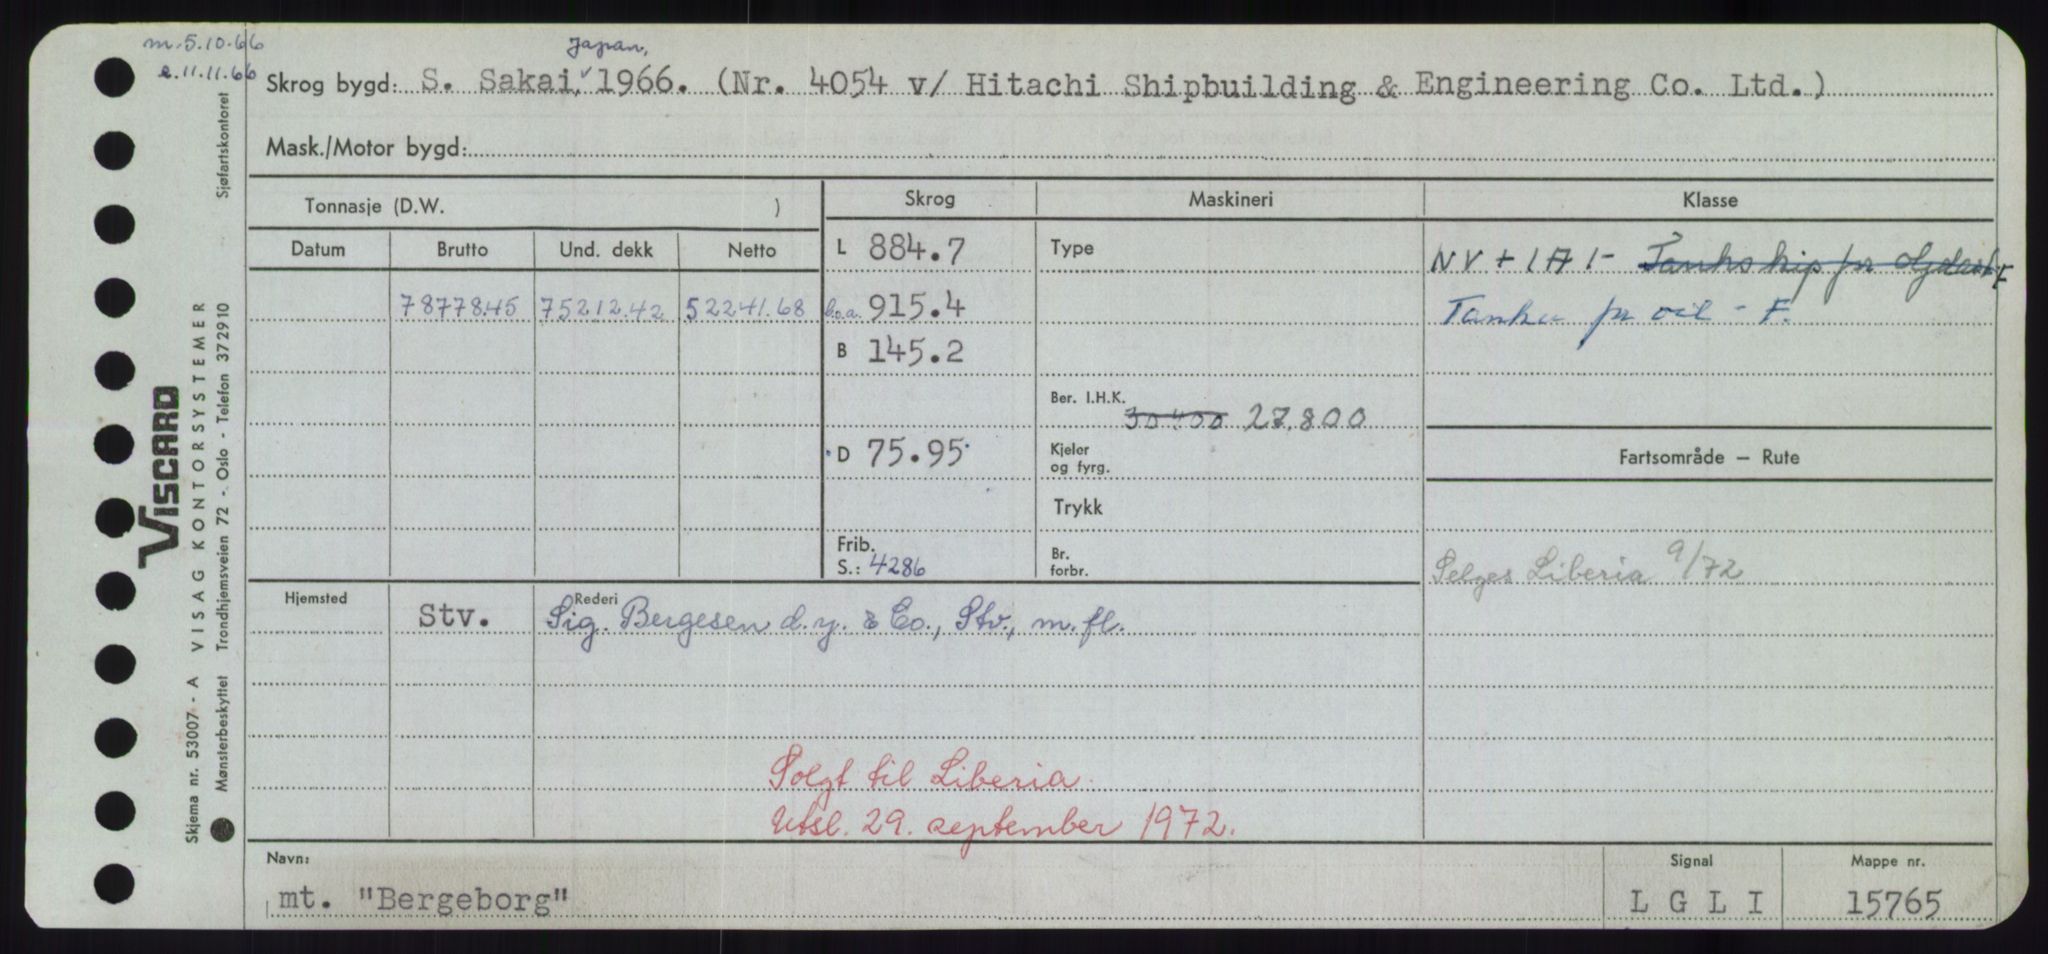 m. 5.10.66
e. 11.11.66
Japan,
Skrog bygd: S. Sakai, 1966. (Nr. 4054 v/ Hitachi Shipbuilding & Engineering Co. Ltd.)
Mask./Motor bygd:
Tonnasje (D.W. ) Skrog Maskineri Klasse
Datum Brutto Und. dekk Netto L 884.7 Type NV + 1A1- Tankskip for oljelast F
78778.45 75212.42 52241.68 l.o.a. 915.4 Tanker for oil - F.
B 145.2
Ber. I.H.K. 30400 27.800
D 75.95 Kjeler og fyrg. Fartsområde — Rute
Trykk
Frib. S.: 4286 Br. forbr. Selges Liberia 9/72
Hjemsted Stv. Rederi Sig. Bergesen d.y. & Co., Stv., m.fl.
Solgt til Liberia.
Utsl. 29. september 1972.
Navn: Signal Mappe nr.
mt. "Bergeborg" L G L I 15765
VISCARD
Skjema nr. 53007 - A VISAG KONTORSYSTEMER
Mønsterbeskyttet Trondhjemsveien 72 - Oslo - Telefon 372910 Sjøfartskontoret